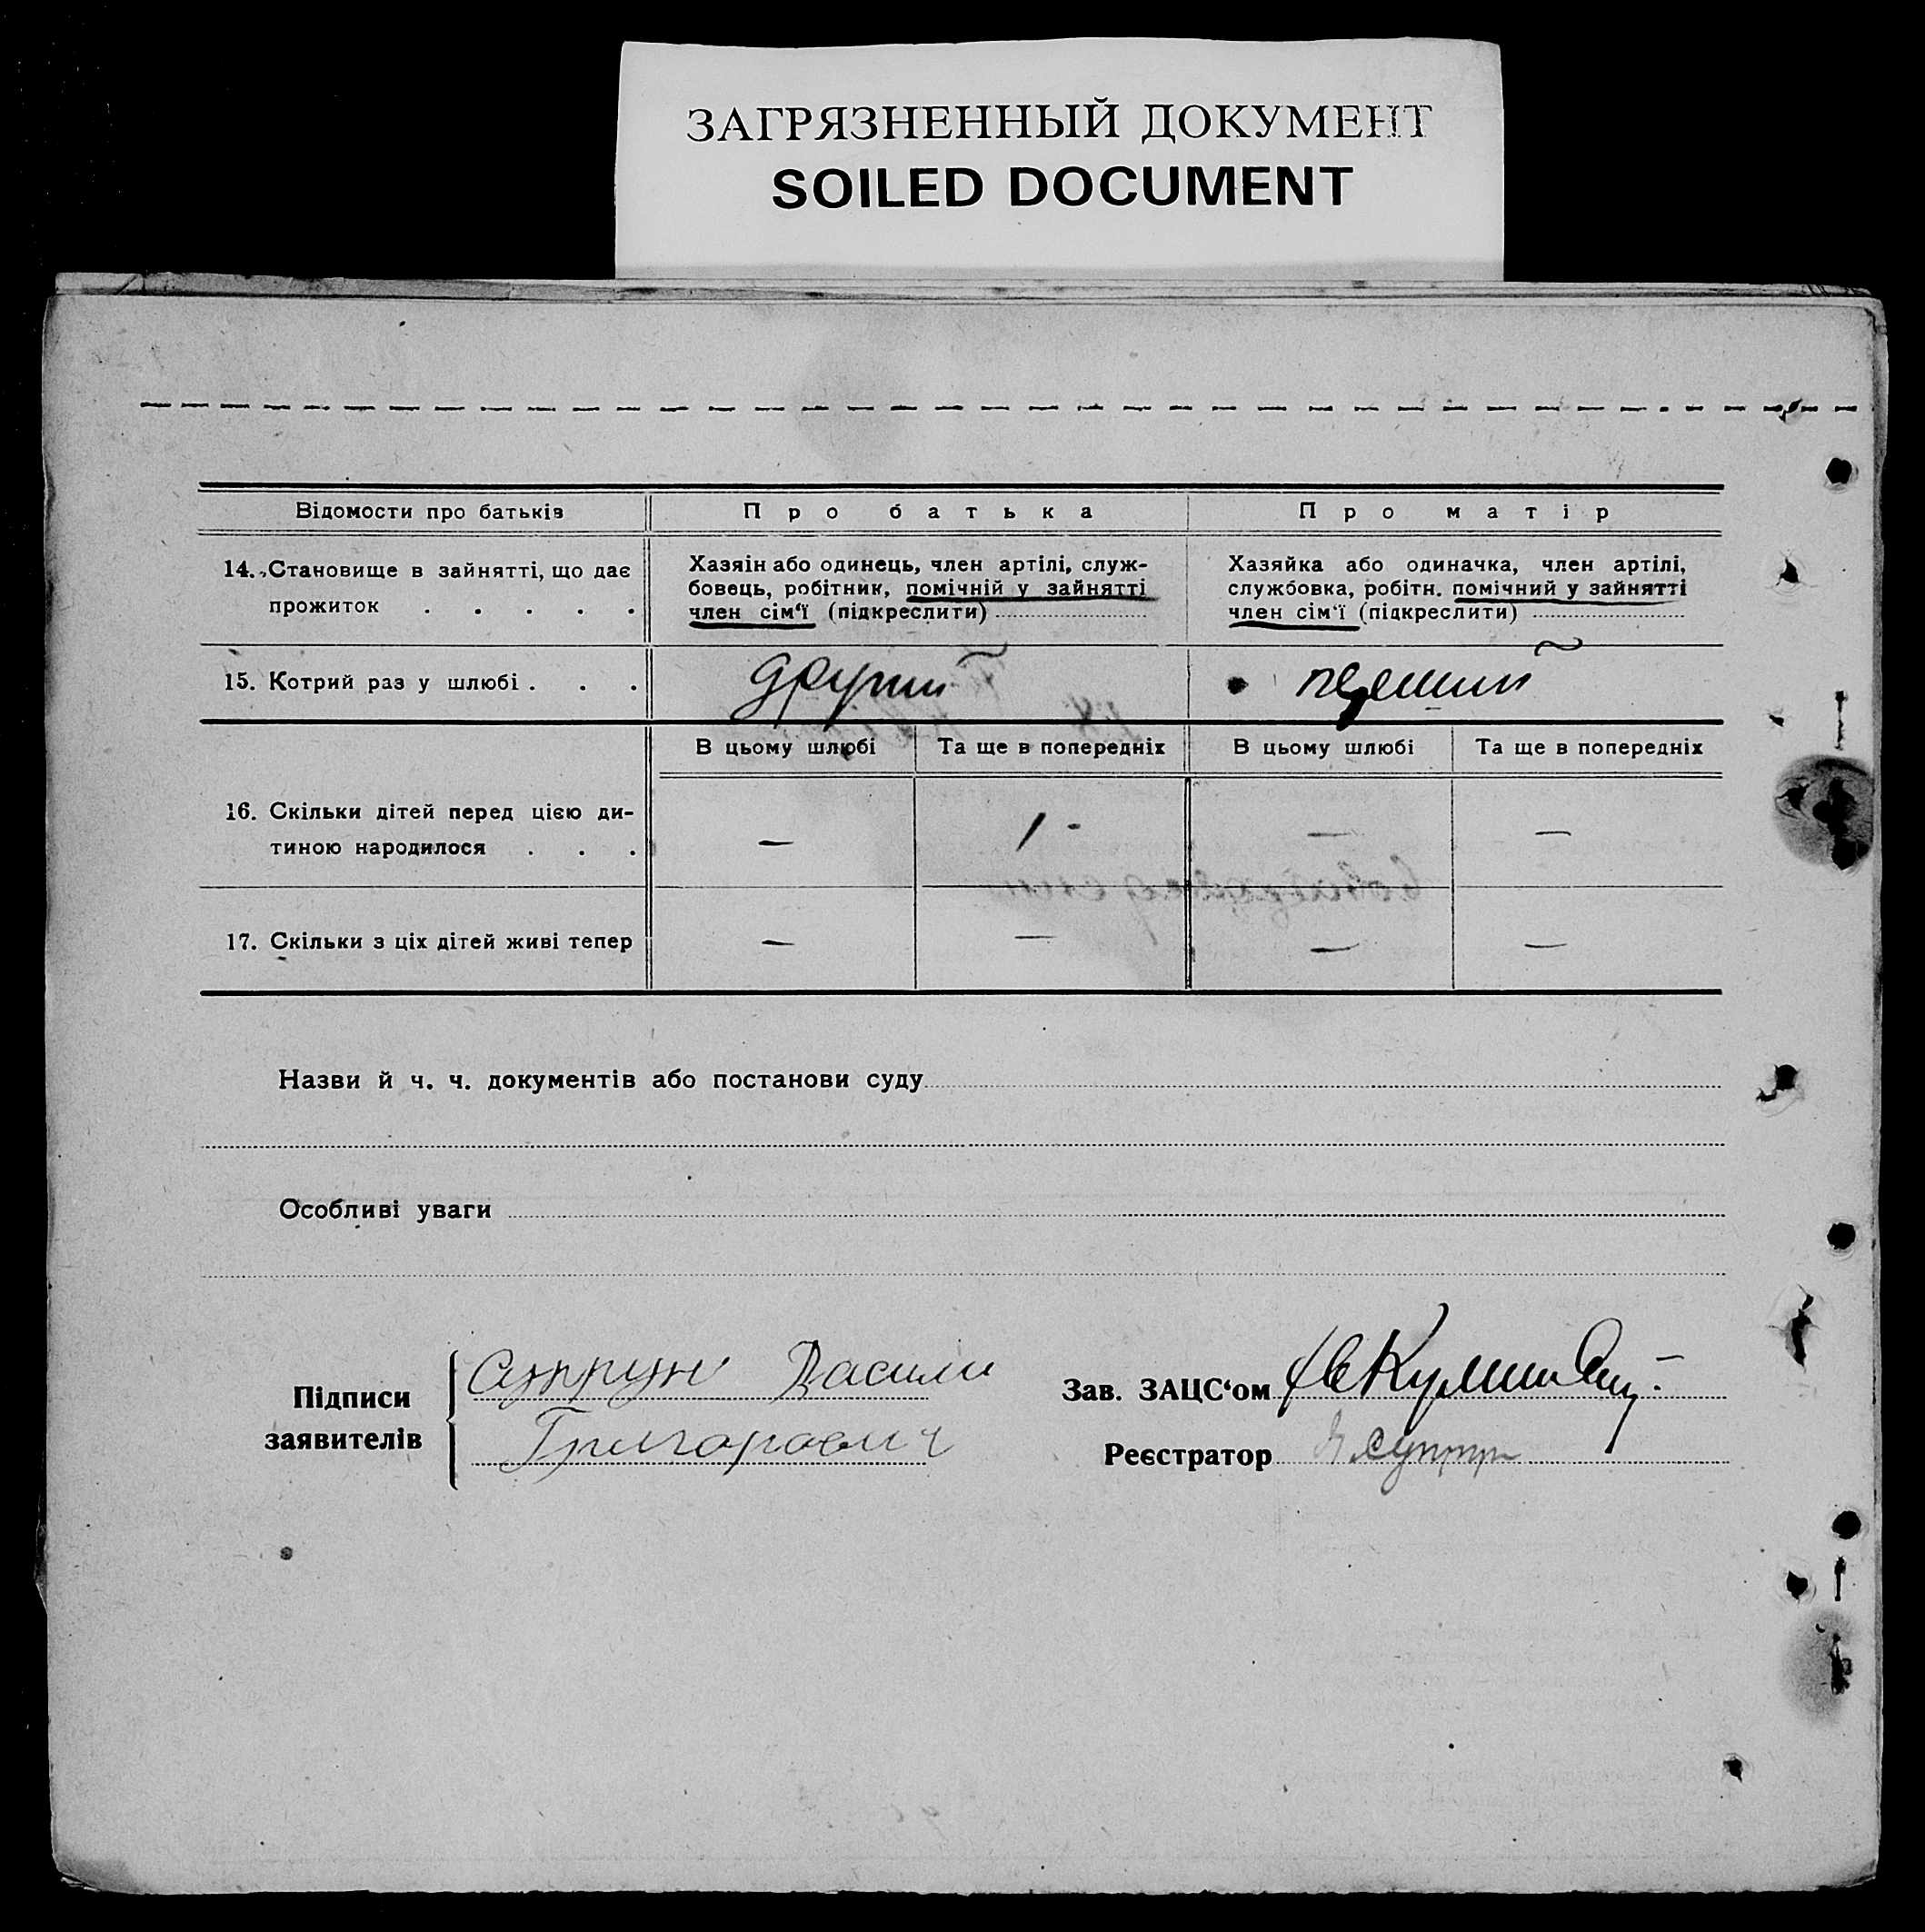 ЗАГРЯЗНЕННЫЙ ДОКУМЕНТ
SOILED DOCUMENT
Відомости про батьків
Про батька
Про матір
14. Становище в зайнятті, що дає
прожиток . . . . .
Хазяін або одинець, член артілі, служ-
бовець, робітник, помічній у зайнятті
член сім‘ї (підкреслити)
Хазяйка або одиначка, член артілі,
службовка, робітн. помічний у зайнятті
член сім‘ї (підкреслити)
15. Котрий раз у шлюбі . . .
другий
перший
В цьому шлюбі
Та ще в попередніх
В цьому шлюбі
Та ще в попередніх
16. Скільки дітей перед цією ди-
тиною народилося . . .
—
1 -
—
—
17. Скільки з ціх дітей живі тепер
—
—
—
—
Назви й ч. ч. документів або постанови суду
Особливі уваги
Підписи
заявителів
Супрун Васили
Григорович
Зав. ЗАЦС‘ом
Реєстратор